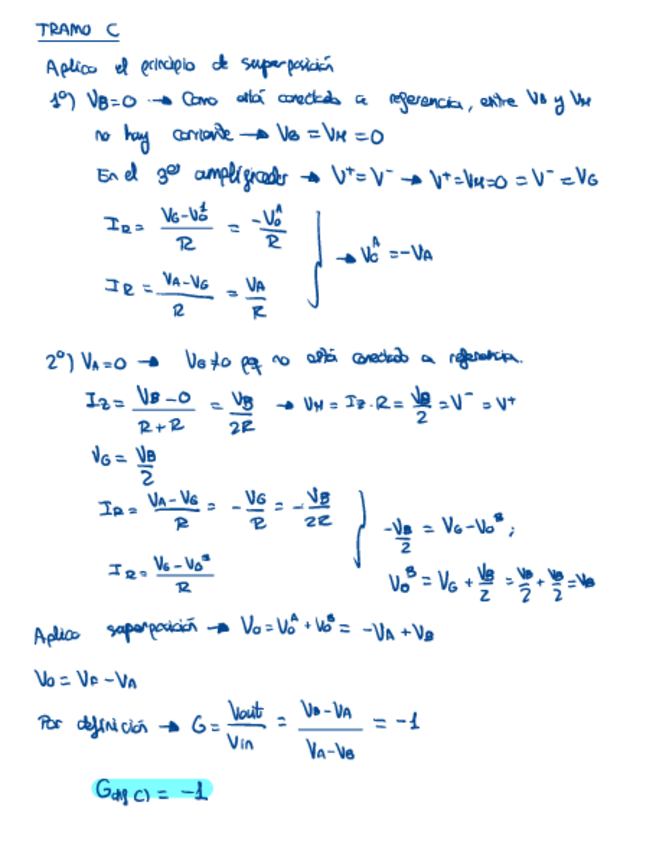 TRAMO C
Aplico el principio de superposición
1º) VB=0 → Como está conectado a referencia, entre VB y VH
no hay corriente → VB = VH = 0
En el 3er amplificador → V+ = V- → V+ = VH = 0 = V- = VG
IR = (VG - Vo^A)/R = -Vo^A/R
IR = (VA - VG)/R = VA/R } → Vo^A = -VA
2º) VA = 0 → VG ≠ 0 pq no está conectado a referencia.
I2 = (VB - 0)/(R + R) = VB/2R → VH = I2 · R = VB/2 = V- = V+
VG = VB/2
IR = (VA - VG)/R = -VG/R = -VB/2R } -VB/2 = VG - Vo^B ;
IR = (VG - Vo^B)/R Vo^B = VG + VB/2 = VB/2 + VB/2 = VB
Aplico superposición → Vo = Vo^A + Vo^B = -VA + VB
Vo = VB - VA
Por definición → G = Vout/Vin = (VB - VA)/(VA - VB) = -1
Gdif C) = -1